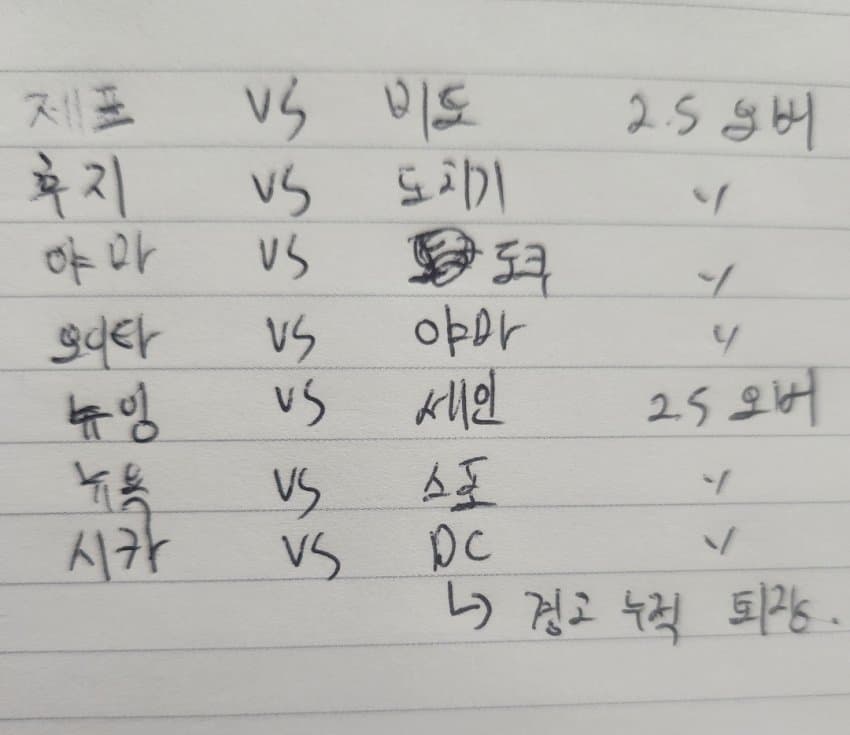 제프 VS 비토 2.5 오버
후지 VS 도치기 〃
야마 VS 도쿠 〃
오이타 VS 야마 〃
뉴잉 VS 세인 2.5 오버
뉴욕 VS 스포 〃
시카 VS DC 〃
↳ 경고 누적 퇴장.